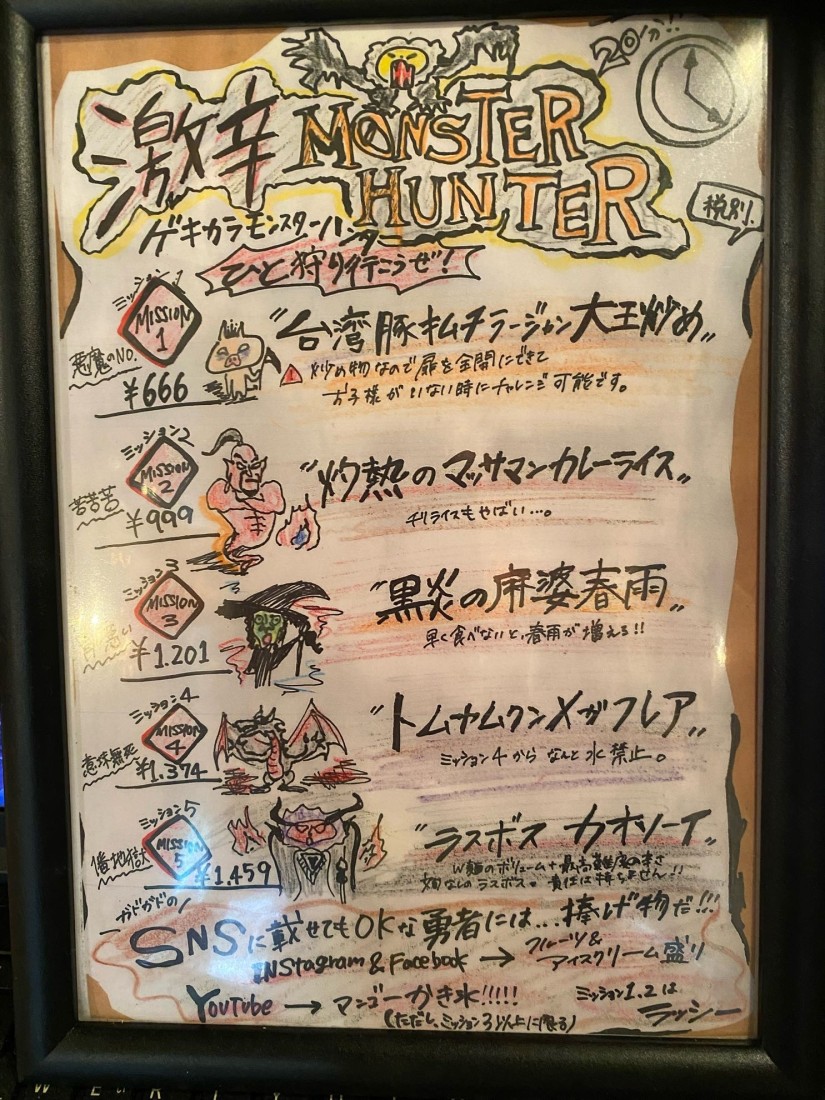 20分!!
激辛 MONSTER
HUNTER
ゲキカラモンスターハンター
税別.
ひと狩り行こうぜ!
ミッション1
MISSION
1
悪魔のNO.
¥666
"台湾豚キムチラージャン大王炒め"
炒め物なので扉を全開にできて
お子様がいない時にチャレンジ可能です。
ミッション2
MISSION
2
苦苦苦
¥999
"灼熱のマッサマンカレーライス"
チリライスもやばい...。
ミッション3
MISSION
3
¥1.201
"黒炎の麻婆春雨"
早く食べないと、春雨が増える!!
ミッション4
MISSION
4
意味無死
¥1.374
"トムヤムクンメガフレア"
ミッション4から なんと水禁止。
ミッション5
MISSION
5
地獄
¥1,459
"ラスボス カオソーイ"
W麺のボリューム+最高難度の辛さ
文句なしのラスボス。責任は持ちません!!
ガドガドの!
SNSに載せてもOKな勇者には...捧げ物だ!!!
INStagram & Facebook → フルーツ&
アイスクリーム盛り
YouTube → マンゴーかき氷!!!!!
(ただし、ミッション3以上に限る)
ミッション1.2は
ラッシー